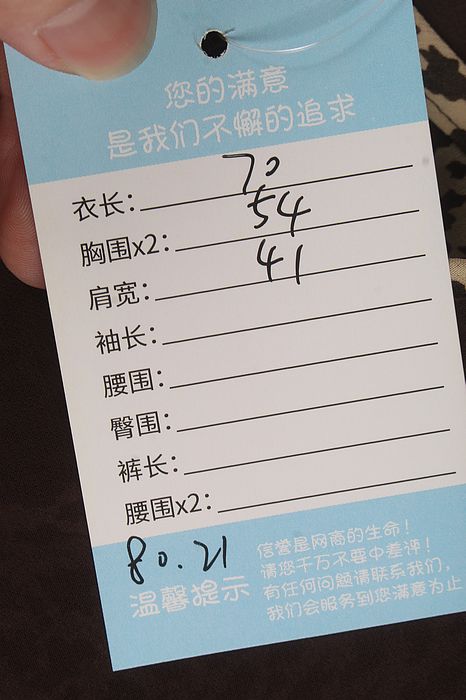 您的满意
是我们不懈的追求
衣长: 70
胸围x2: 54
肩宽: 41
袖长:
腰围:
臀围:
裤长:
腰围x2:
80.21
温馨提示
信誉是网商的生命!
请您千万不要中差评!
有任何问题请联系我们,
我们会服务到您满意为止